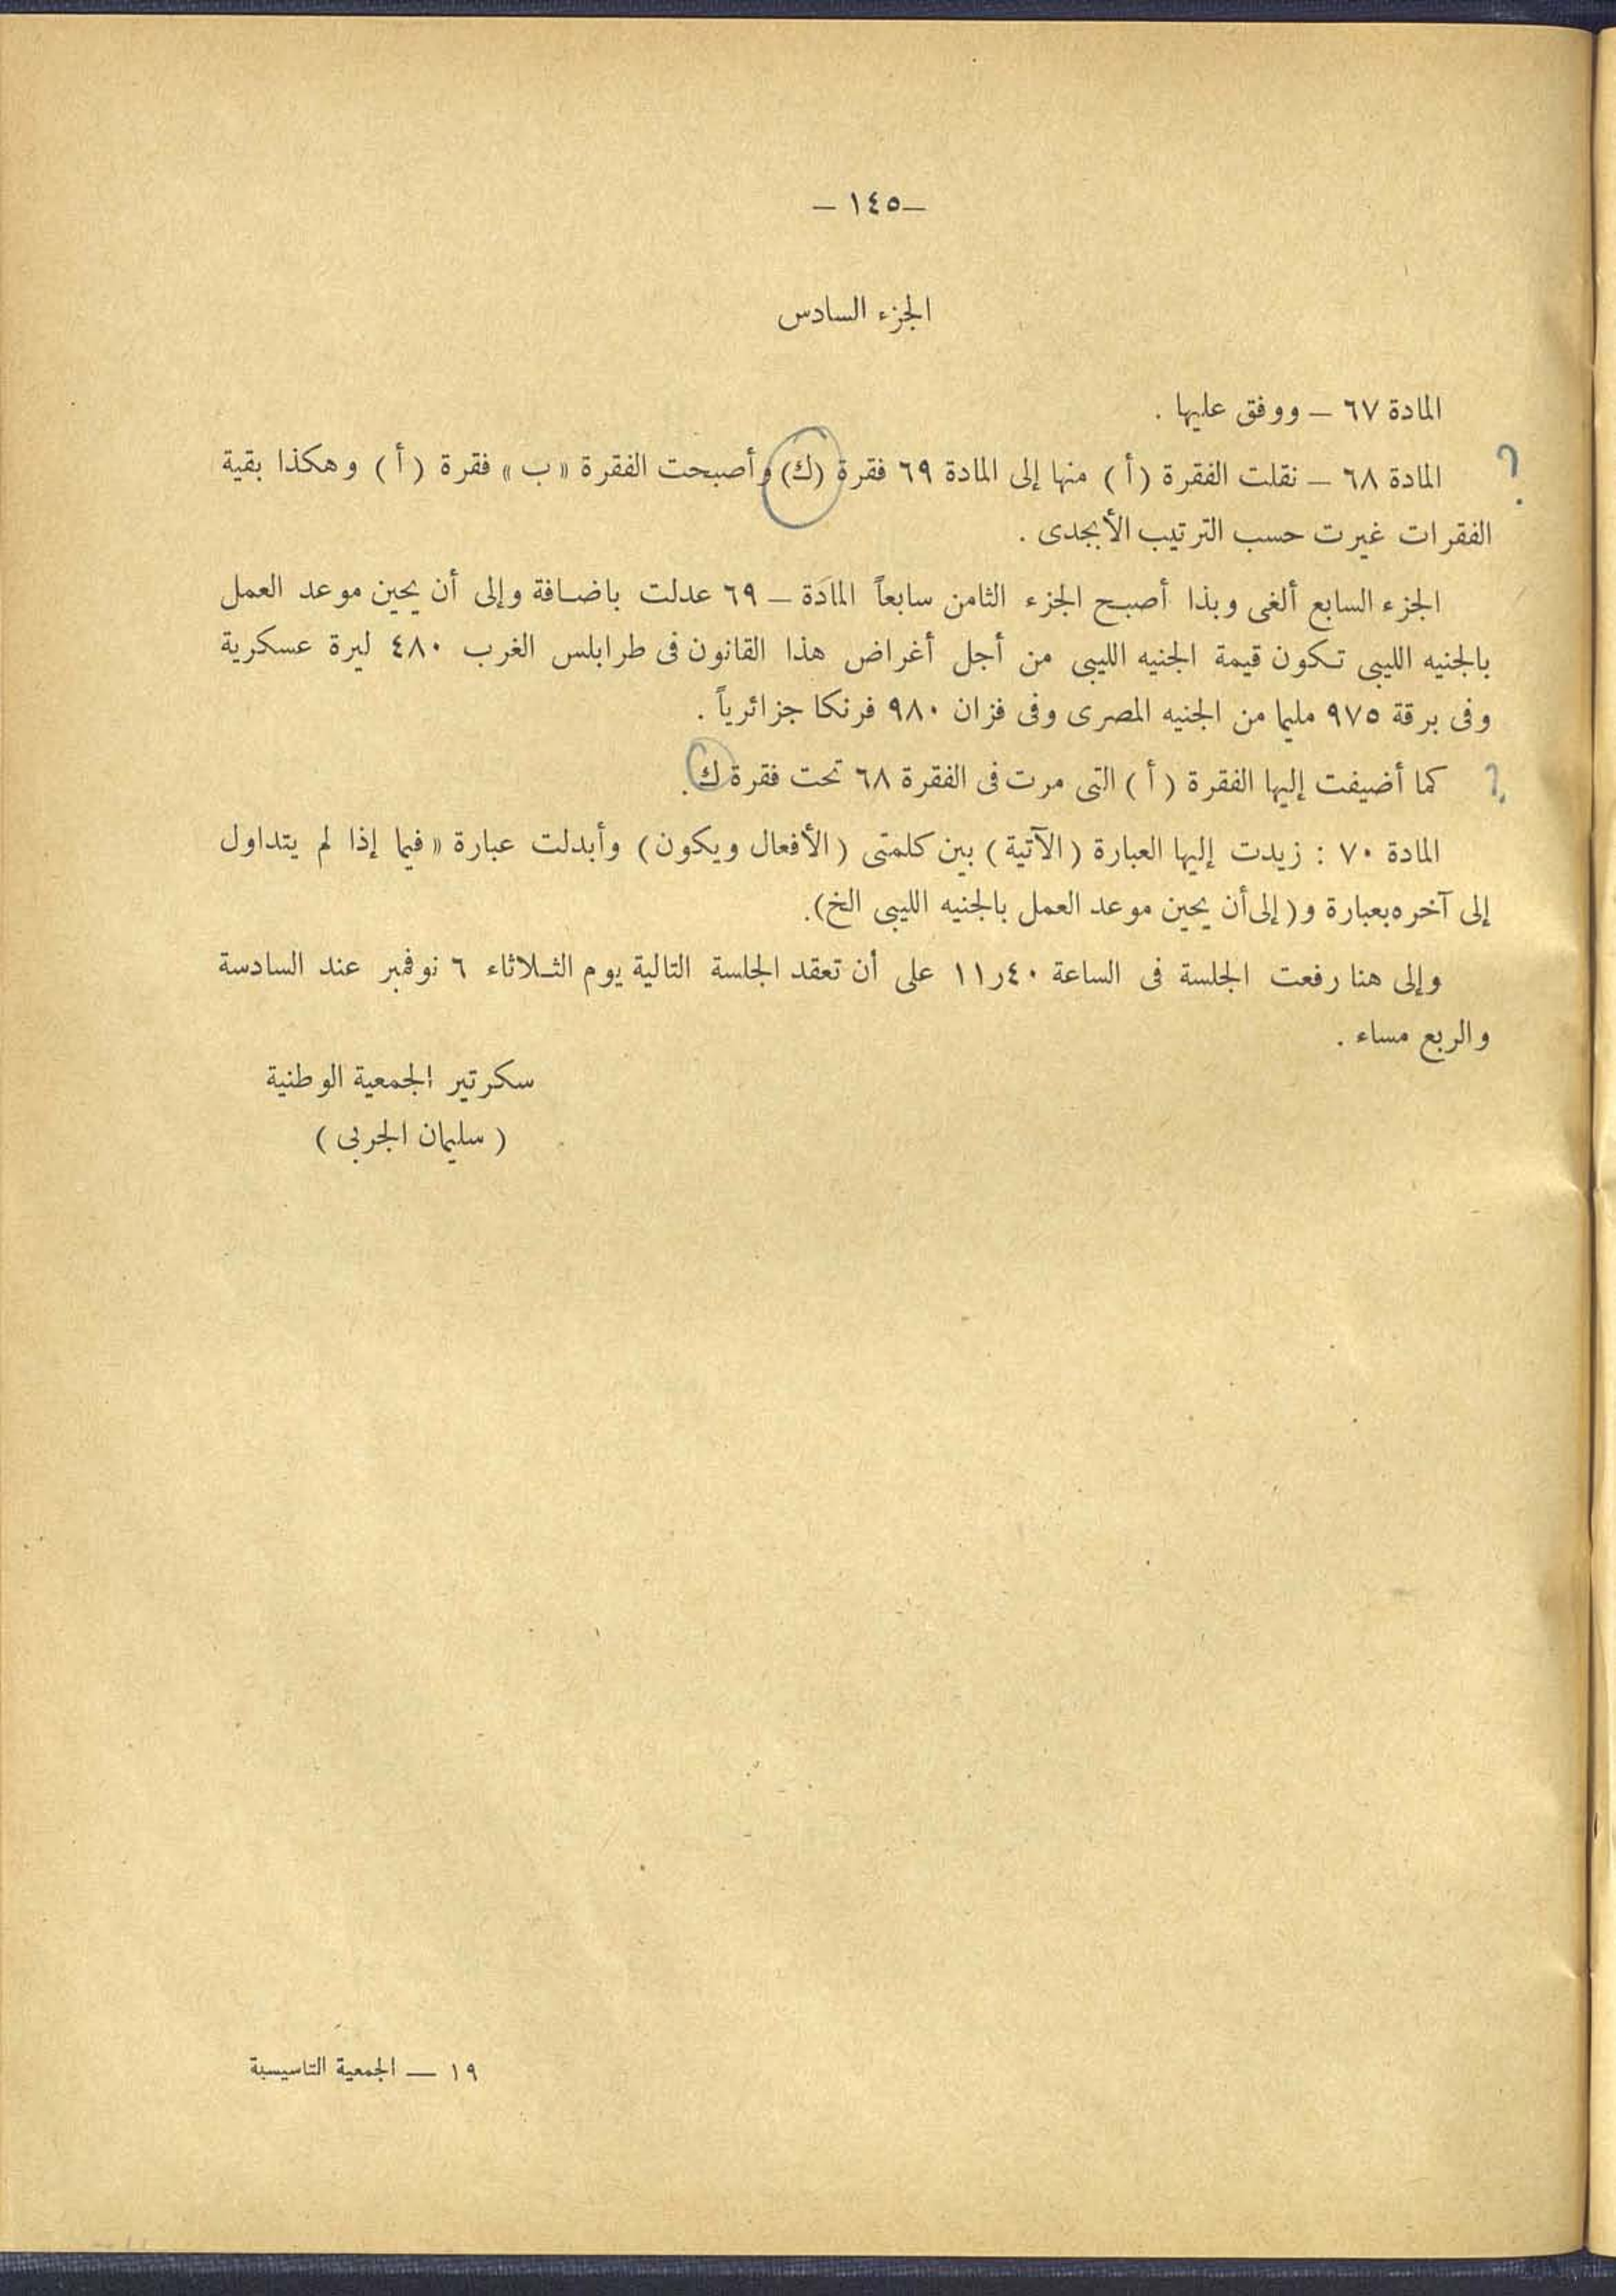 — ١٤٥ —
الجزء السادس
المادة ٦٧ — ووفق عليها .
؟ المادة ٦٨ — نقلت الفقرة ( أ ) منها إلى المادة ٦٩ فقرة (ك) وأصبحت الفقرة « ب » فقرة ( أ ) وهكذا بقية
الفقرات غيرت حسب الترتيب الأبجدى .
الجزء السابع ألغى وبذا أصبح الجزء الثامن سابعاً المادَة — ٦٩ عدلت باضافة وإلى أن يحين موعد العمل
بالجنيه الليبى تكون قيمة الجنيه الليبى من أجل أغراض هذا القانون فى طرابلس الغرب ٤٨٠ ليرة عسكرية
وفى برقة ٩٧٥ مليما من الجنيه المصرى وفى فزان ٩٨٠ فرنكا جزائرياً .
؟ كما أضيفت إليها الفقرة ( أ ) التى مرت فى الفقرة ٦٨ تحت فقرة ك .
المادة ٧٠ : زيدت إليها العبارة ( الآتية ) بين كلمتى ( الأفعال ويكون ) وأبدلت عبارة « فيما إذا لم يتداول
إلى آخره بعبارة و ( إلى أن يحين موعد العمل بالجنيه الليبى الخ ).
وإلى هنا رفعت الجلسة فى الساعة ٤٠ر١١ على أن تعقد الجلسة التالية يوم الثلاثاء ٦ نوفمبر عند السادسة
والربع مساء .
سكرتير الجمعية الوطنية
( سليمان الجربى )
١٩ — الجمعية التاسيسية